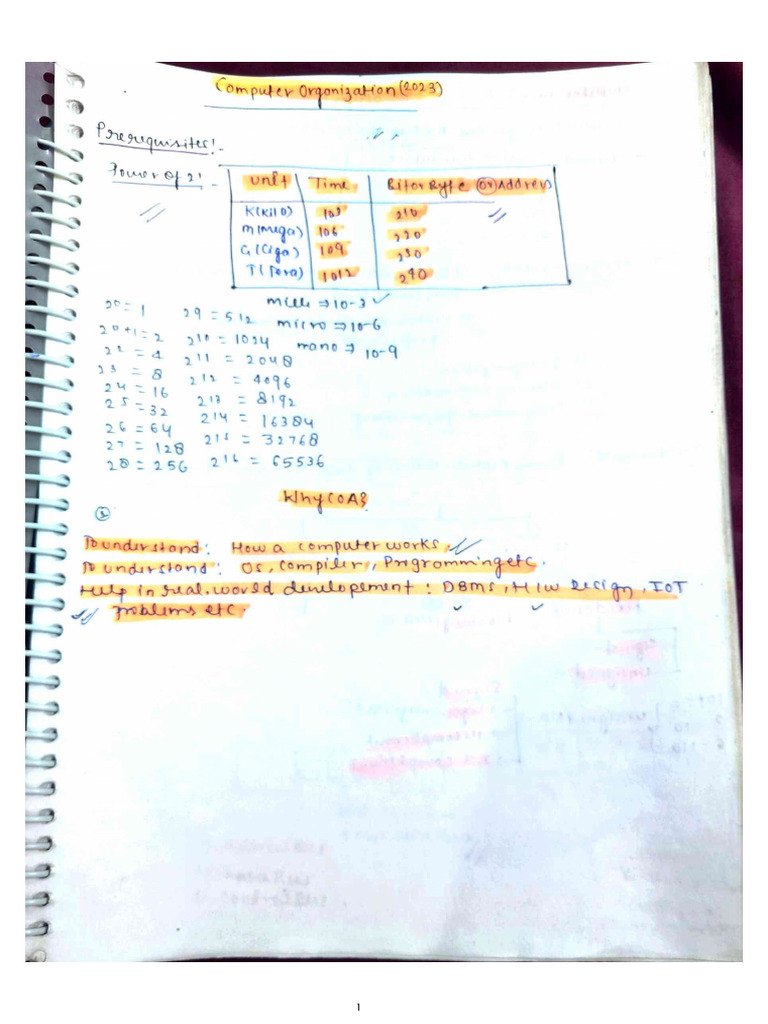 Computer Organization (2023)
Prerequisites:-
Power of 2: -
Unit | Time | Bit or Byte (or) Address
K(Kilo) | 10^3 | 2^10
M(Mega) | 10^6 | 2^20
G(Giga) | 10^9 | 2^30
T(Tera) | 10^12 | 2^40
milli => 10^-3 ✓
2^0 = 1 2^9 = 512 micro => 10^-6
2^0+1 = 2 2^10 = 1024 nano => 10^-9
2^2 = 4 2^11 = 2048
2^3 = 8 2^12 = 4096
2^4 = 16 2^13 = 8192
2^5 = 32 2^14 = 16384
2^6 = 64 2^15 = 32768
2^7 = 128 2^16 = 65536
2^8 = 256
Why COA?
①
To understand: How a computer works,
To understand: OS, Compiler, Programming etc.
Help in real.world development : DBMS, H/W Design, IOT
problems etc.
1